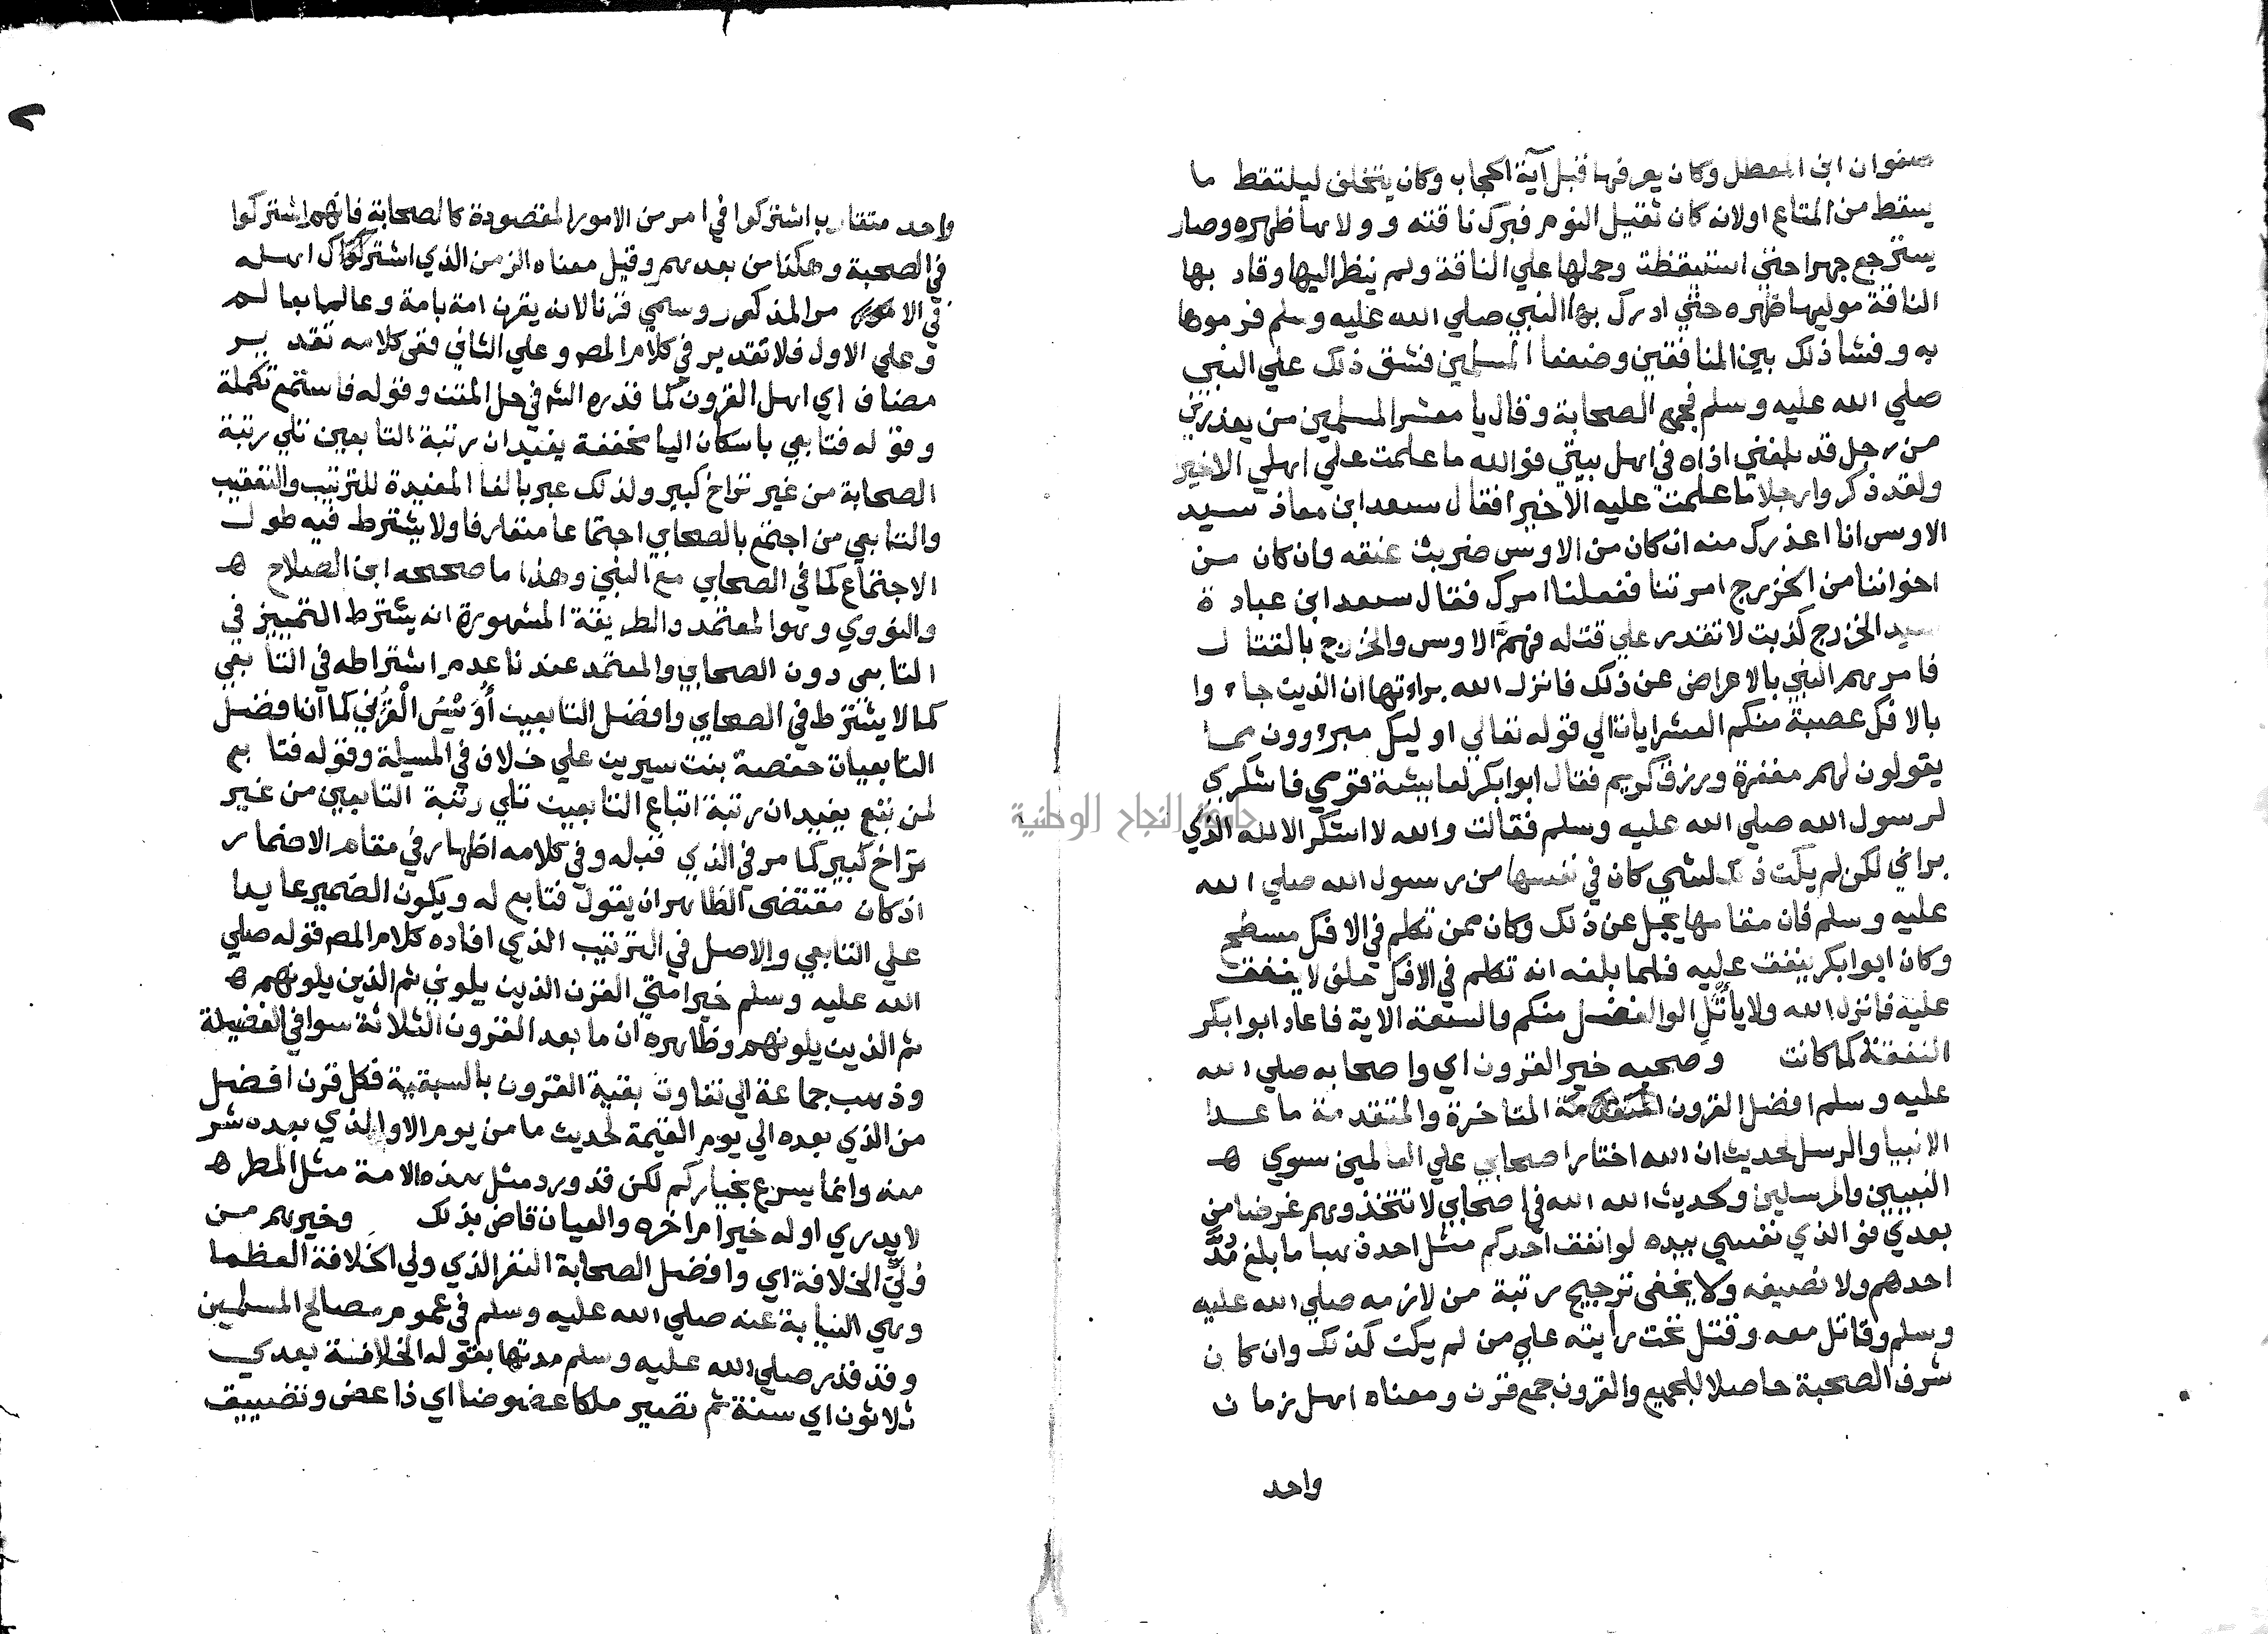 صفوان ابن المعطل وكان يعرفها قبل آية الحجاب وكان يتخلف ليلتقط ما
يسقط من المتاع اولانه كان ثقيل النوم فبرك ناقته و ولاها ظهره وصار
يسترجع جهرا حتي استيقظت وحملها علي الناقة ولم ينظر اليها وقاد بها
الناقة موليها ظهره حتي ادرك بها النبي صلي الله عليه وسلم فرموها
به وفشا ذلك بين المنافقين وضعفا المسلمين فشق ذلك علي النبي
صلي الله عليه وسلم فجمع الصحابة وقال يا معشر المسلمين من يعذرني
من رجل قد بلغني اذاه في اهل بيتي فوالله ما علمت علي اهلي الاخير
ولقد ذكروا رجلا ما علمت عليه الاخيرا فقال سعد ابن معاذ سيد
الاوس انا اعذرك منه ان كان من الاوس ضربت عنقه وان كان من
اخواننا من الخزرج امرتنا ففعلنا امرك فقال سعد ابن عبادة
سيد الخزرج كذبت لا تقدر علي قتله فهمّ الاوس والخزرج بالقتال
فامرهم النبي بالاعراض عن ذلك فانزل الله براءتها ان الذين جاءوا
بالافك عصبة منكم العشر ايات الي قوله تعالي اوليك مبرءوون مما
يقولون لهم مغفرة ورزق كريم فقال ابوا بكر لعايشة قومي فاشكري
لرسول الله صلي الله عليه وسلم فقالت والله لا اشكر الا لله الذي
براني لكن لم يكن ذلك لشي كان في نفسها من رسول الله صلي الله
عليه وسلم فان مقامها يجل عن ذلك وكان ممن تكلم في الافك مسطح
وكان ابوا بكر ينفق عليه فلما بلغه انه تكلم في الافك حلف لا ينفق
عليه فانزل الله ولا يأتل الوا الفضل منكم والسعة الاية فاعاد ابوا بكر
النفقة كما كانت وصحبه خير القرون اي واصحابه صلي الله
عليه وسلم افضل القرون المتاخرة والمتقدمة ما عدا
الانبيا والرسل لحديث ان الله اختار اصحابي علي العالمين سوي ه
النبيين والمرسلين وحديث الله الله في اصحابي لا تتخذوهم غرضا من
بعدي فوالذي نفسي بيده لو انفق احدكم مثل احد ذهبا ما بلغ مُدَّ
احدهم ولا نصيفه ولا يخفى ترجيح رتبة من لازمه صلي الله عليه
وسلم وقاتل معه وقتل تحت رايته علي من لم يكن كذلك وان كان
شرف الصحبة حاصلا للجميع والقرون جمع قرن ومعناه اهل زمان
واحد
واحد متقارب اشتركوا في امر من الامور المقصودة كالصحابة فانهم اشتركوا
في الصحبة وهكذا من بعدهم وقيل معناه الزمن الذي اشترك اهله
في الامر المذكور وسمي قرنا لانه يقرن امة بامة وعالما بعالم
وعلي الاول فلا تقدير في كلام المص وعلي الثاني ففي كلامه تقدير
مضاف اي اهل القرون كما قدره الش في حل المتن وقوله فاستمع تكملة
وقوله فتابعي باسكان اليا مخففة يفيد ان رتبة التابعين تلي رتبة
الصحابة من غير تراخ كبير ولذلك عبر بالفا المفيدة للترتيب والتعقيب
والتابعي من اجتمع بالصحابي اجتماعا متعارفا ولا يشترط فيه طول
الاجتماع كما في الصحابي مع النبي وهذا ما صححه ابن الصلاح ه
والنووي وهو المعتمد والطريقة المشهورة انه يشترط التمييز في
التابعي دون الصحابي والمعتمد عندنا عدم اشتراطه في التابعي
كما لا يشترط في الصحابي وافضل التابعين أُوَيْسُ الْقَرَني كما ان افضل
التابعيات حفصة بنت سيرين علي خلاف في المسيلة وقوله فتابع
لمن تبع يفيد ان رتبة اتباع التابعين تلي رتبة التابعين من غير
تراخ كبير كما مر في الذي قبله وفي كلامه اظهار في مقام الاضمار
اذ كان مقتضى الظاهر ان يقول فتابع له ويكون الضمير عايدا
علي التابعي والاصل في الترتيب الذي افاده كلام المص قوله صلي
الله عليه وسلم خير امتي القرن الذين يلوني ثم الذين يلونهم ه
ثم الذين يلونهم وظاهره ان ما بعد القرون الثلاثة سوا في الفضيلة
وذهب جماعة الي تفاوت بقية القرون بالسبقية فكل قرن افضل
من الذي بعده الي يوم القيمة لحديث ما من يوم الا والذي بعده شر
منه وانما يسرع بخياركم لكن قد ورد مثل هذه الامة مثل المطر ه
لا يدري اوله خير ام اخره والعيان قاض بذلك وخيرهم من
وُليَّ الخلافة اي وافضل الصحابة النفر الذي ولي الخلافة العظما
وهي النيابة عنه صلي الله عليه وسلم في عموم مصالح المسلمين
وقد قدر صلي الله عليه وسلم مدتها بقوله الخلافة بعدي
ثلاثون اي سنة ثم تصير ملكا عضوضا اي ذا عض وتضييق
جامعة النجاح الوطنية